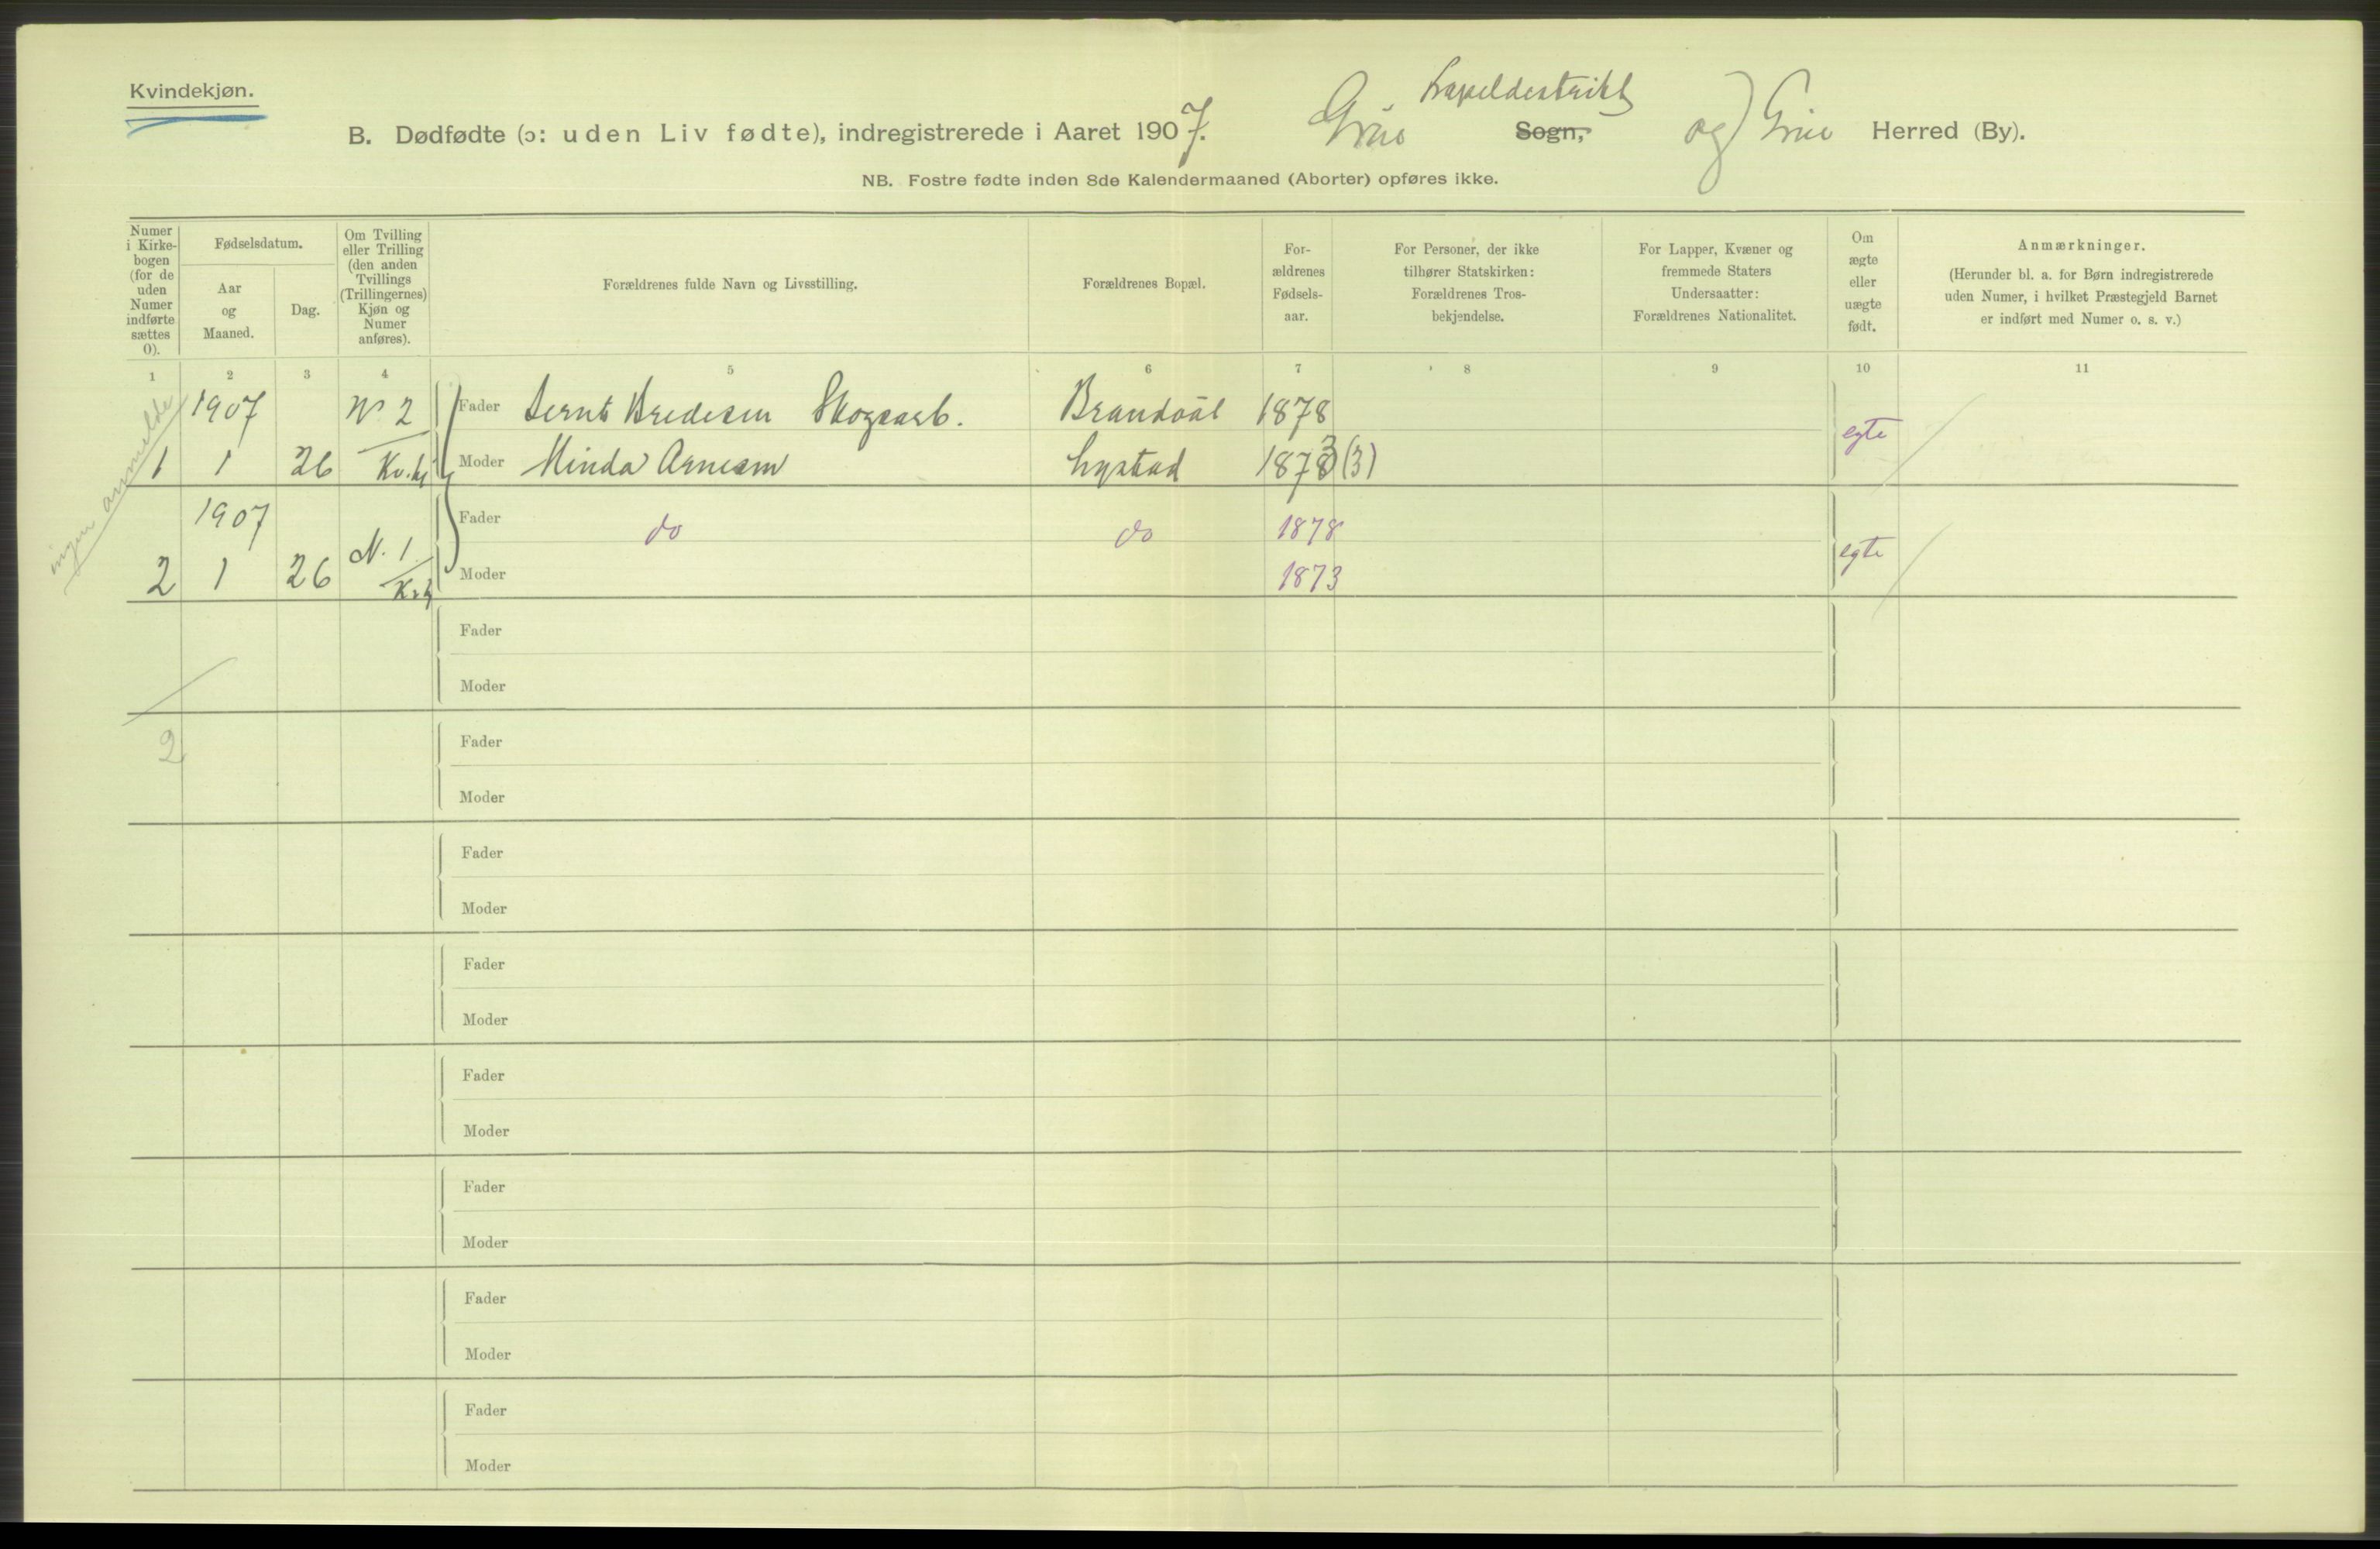 Kvindekjøn.
B. Dødfødte (ɔ: uden Liv fødte), indregistrerede i Aaret 1907. Grue Kapeldestrikt Sogn, og Grue Herred (By).
NB. Fostre fødte inden 8de Kalendermaaned (Aborter) opføres ikke.
Numer
i Kirke-
bogen
(for de
uden
Numer
indførte
sættes
0).
Fødselsdatum.
Aar
og
Maaned.
Dag.
Om Tvilling
eller Trilling
(den anden
Tvillings
(Trillingernes)
Kjøn og
Numer
anføres).
Forældrenes fulde Navn og Livsstilling.
Forældrenes Bopæl.
For-
ældrenes
Fødsels-
aar.
For Personer, der ikke
tilhører Statskirken:
Forældrenes Tros-
bekjendelse.
For Lapper, Kvæner og
fremmede Staters
Undersaatter:
Forældrenes Nationalitet.
Om
ægte
eller
uægte
født.
Anmærkninger.
(Herunder bl. a. for Børn indregistrerede
uden Numer, i hvilket Præstegjeld Barnet
er indført med Numer o. s. v.)
1 2 3 4 5 6 7 8 9 10 11
ingen anmeldt
1907 No 2 Fader Bernt Bredesen Skogsarb. Brandvål 1878
1 1 26 Kv.kj Moder Minda Arnesen Lystad 1873 (3) egte
1907 N. 1 Fader do do 1878
2 1 26 K.kj Moder 1873 egte
Fader
Moder
2
Fader
Moder
Fader
Moder
Fader
Moder
Fader
Moder
Fader
Moder
Fader
Moder
Fader
Moder